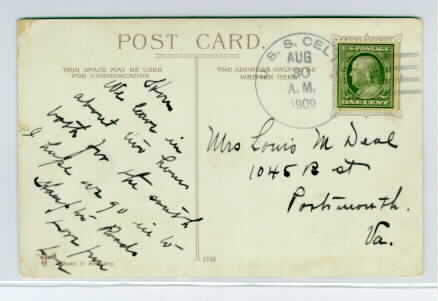 POST CARD.
THIS SPACE MAY BE USED
FOR COMMUNICATION
THE ADDRESS ONLY TO BE
WRITTEN HERE
U. S. S. CELT
AUG
30
A.M.
1909
U.S. POSTAGE
ONE CENT
We leave in
about two hours
for the south
I hope we go in to
Hampton Roads
Mrs Louis M Deal
1045 B st
Portsmouth.
Va.